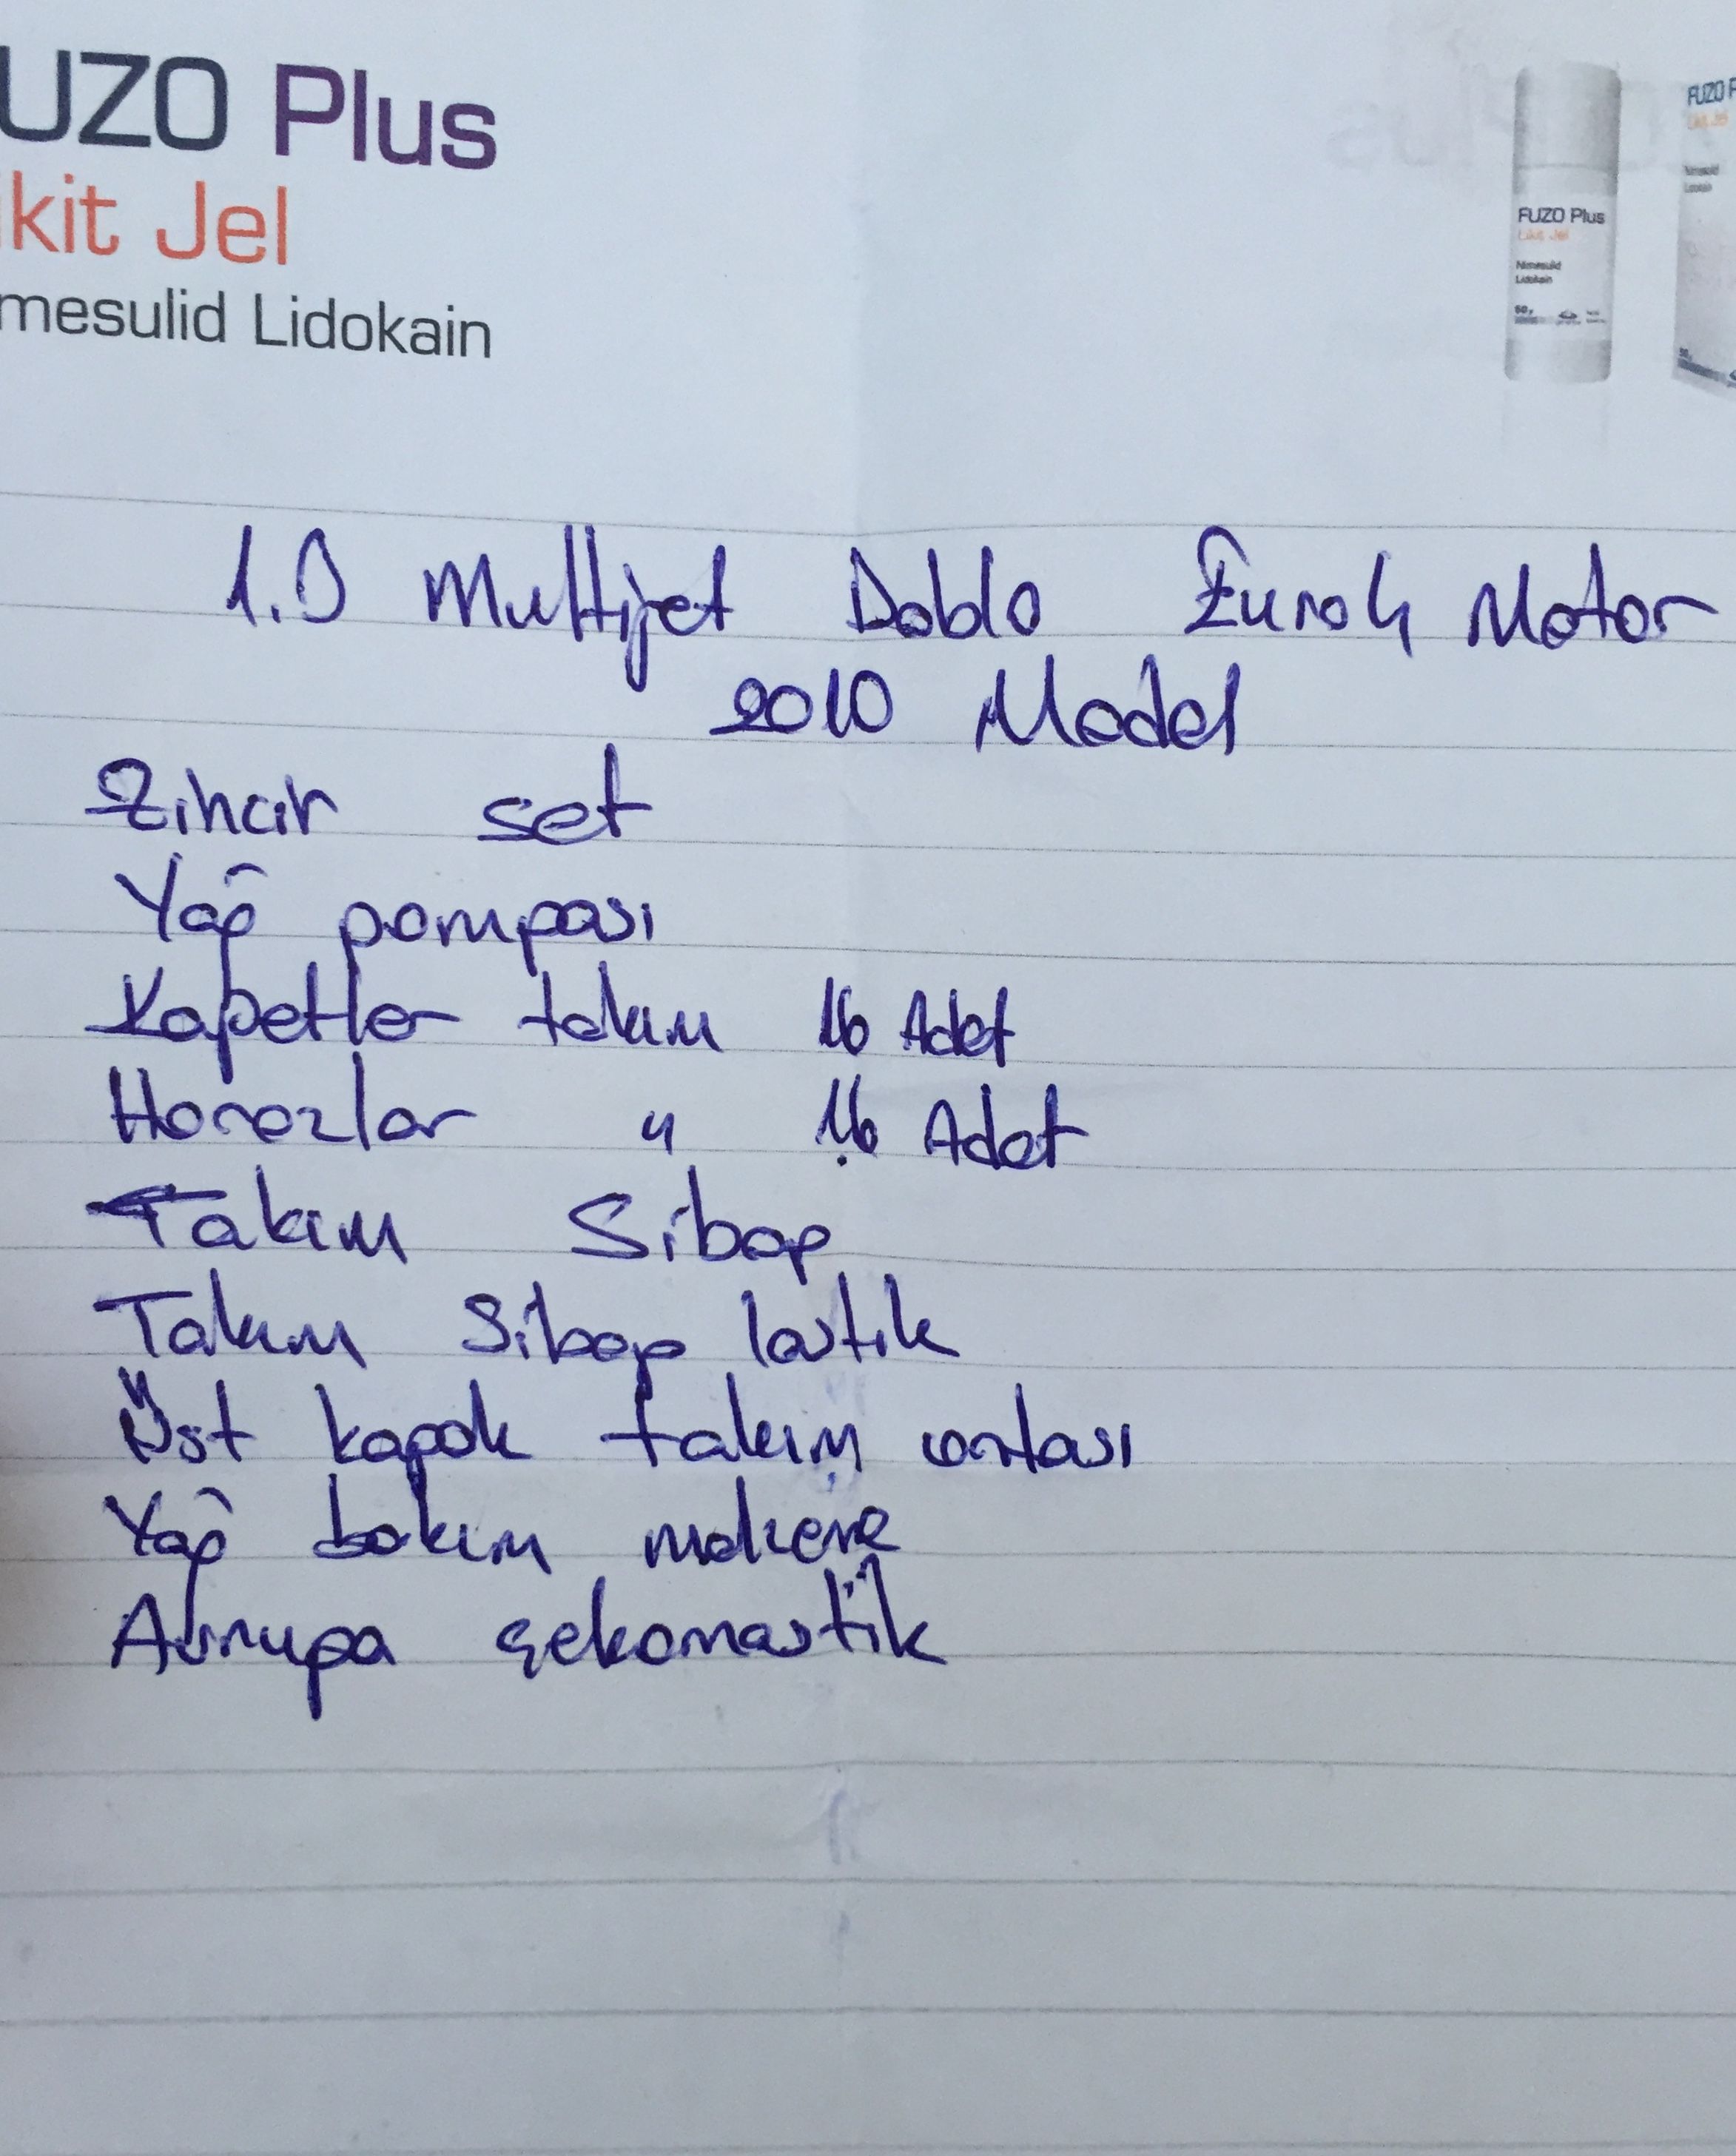 UZO Plus
ikit Jel
mesulid Lidokain
FUZO Plus
Likit Jel
Nimesulid
Lidokain
50g
FUZO P
1.9 Multijet Doblo Euro4 Motor
2010 Model
Zincir set
Yağ pompası
Kapetler takım 16 Adet
Horozlar " 16 Adet
Takım Sibop
Takım Sibop lastik
Üst kapak takım contası
Yağ bakım makene
Avrupa çekomastik